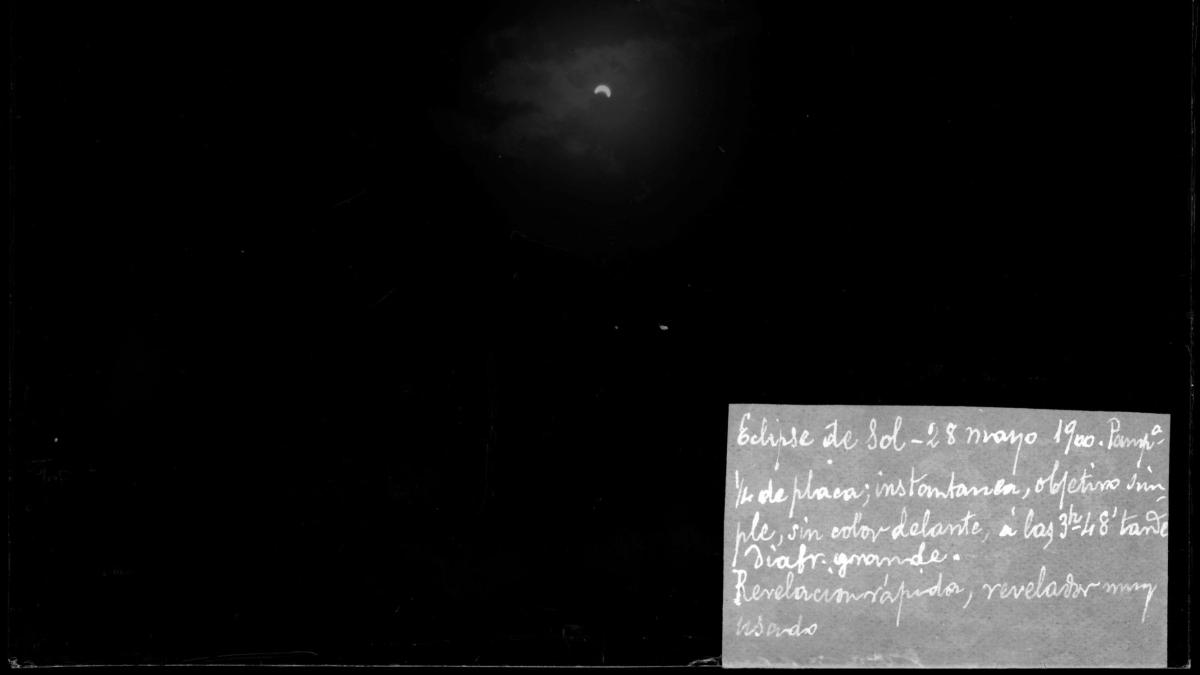 Eclipse de Sol - 28 mayo 1900. Pampª
1/4 de placa; instantanea, objetivo sim
ple, sin color delante, á las 3h 48' tarde
Diafr. grande.
Revelacion rápida, revelador muy
usado